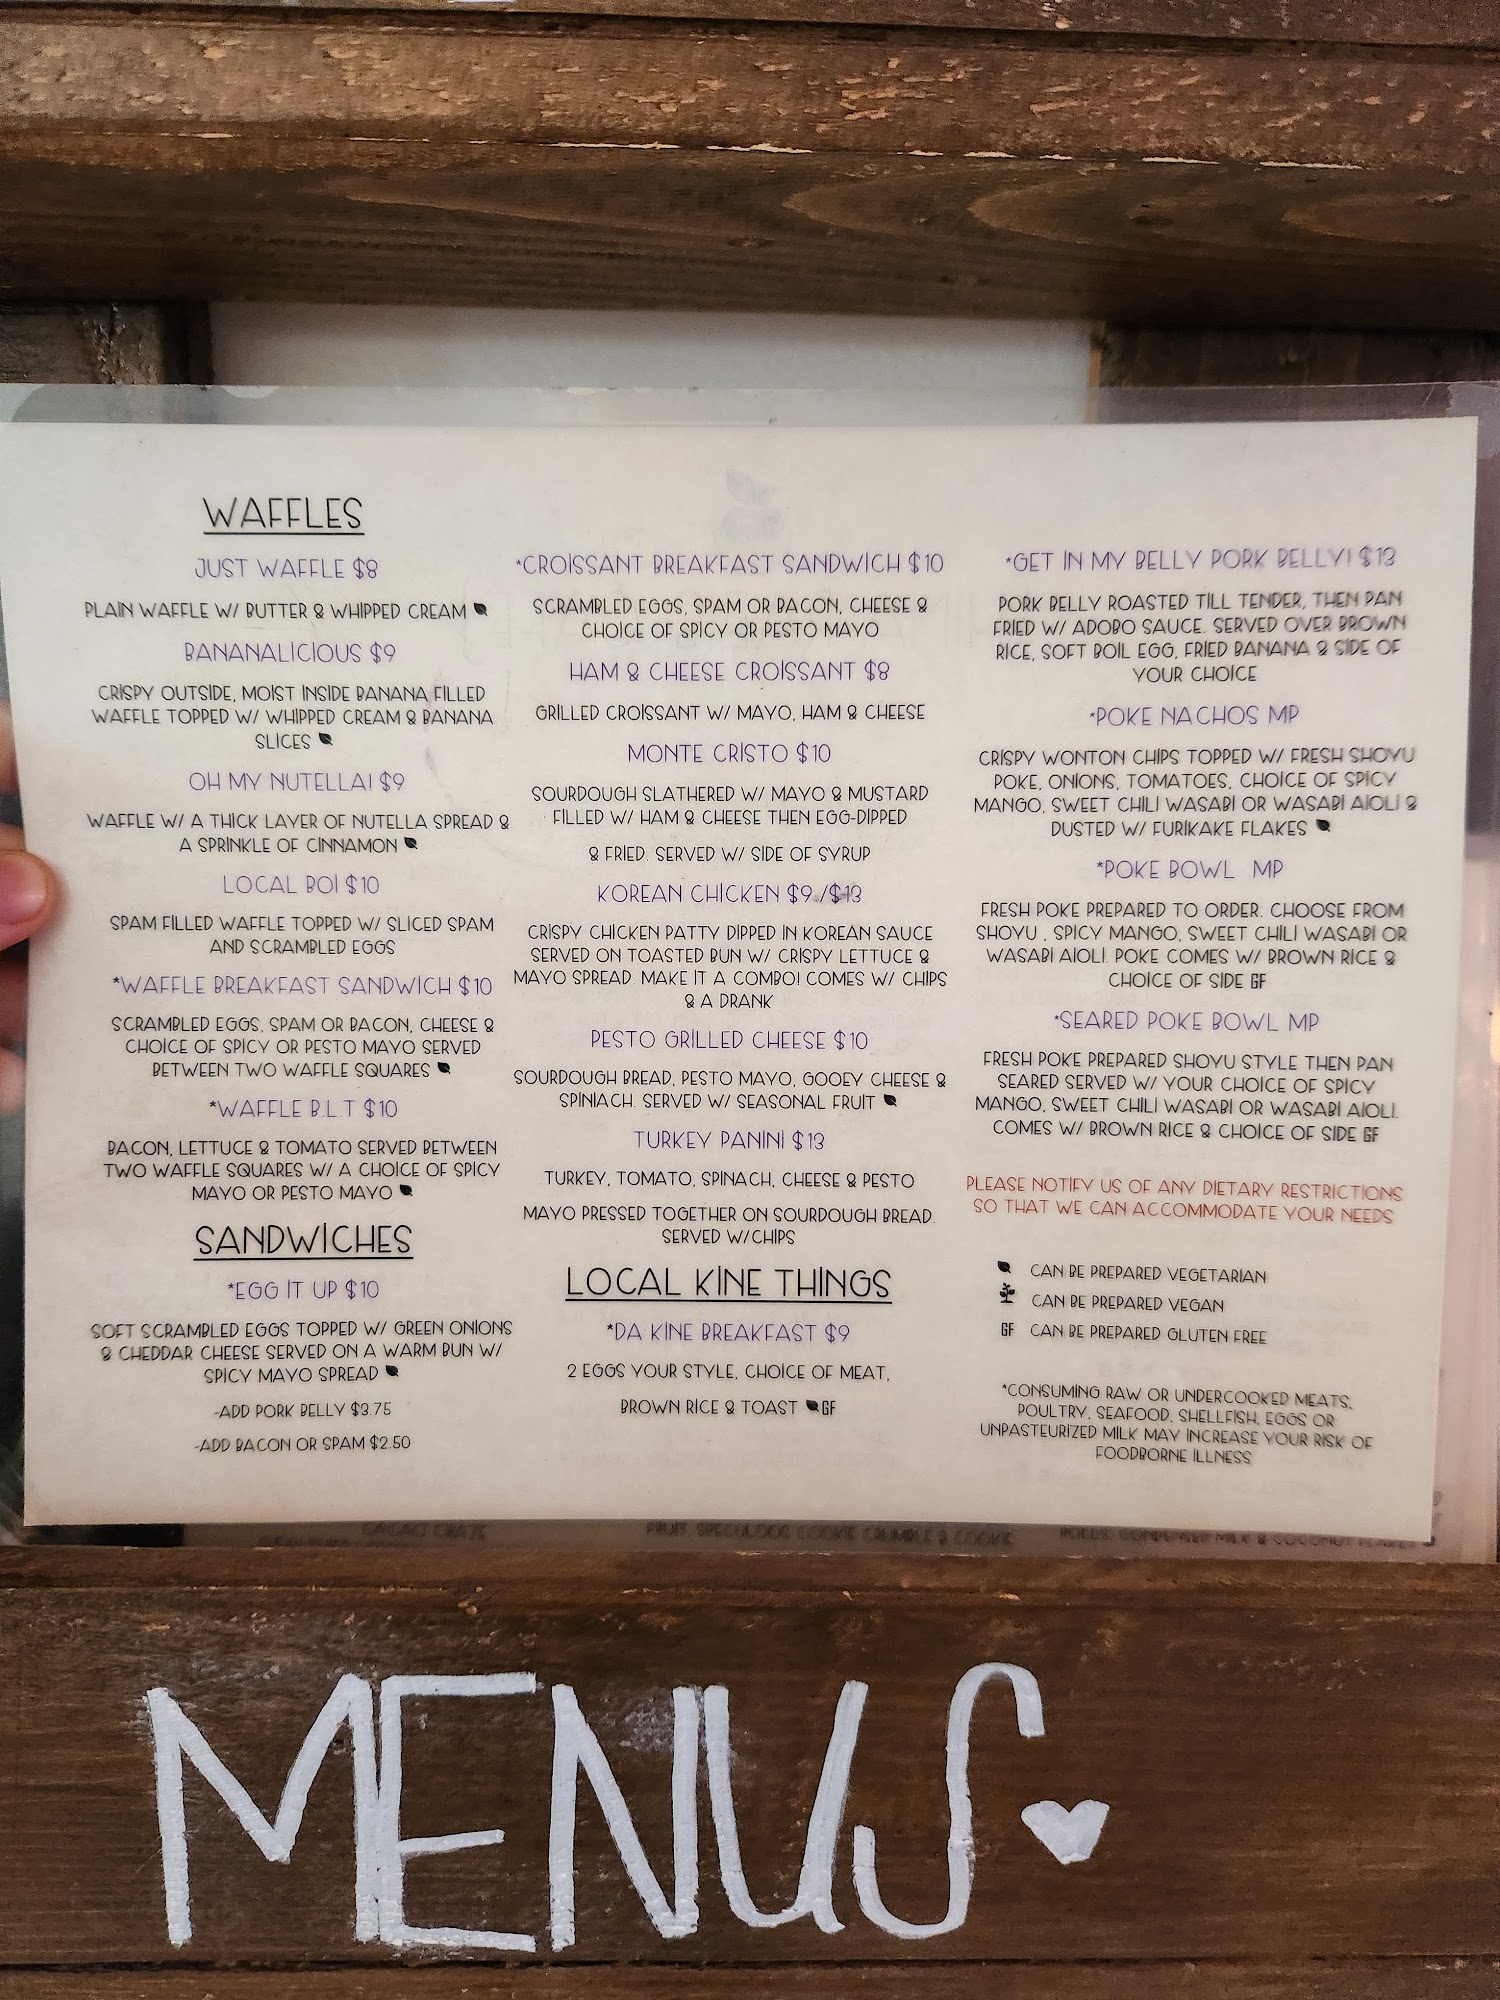 WAFFLES
JUST WAFFLE $8
PLAIN WAFFLE W/ BUTTER & WHIPPED CREAM
BANANALICIOUS $9
CRISPY OUTSIDE, MOIST INSIDE BANANA FILLED
WAFFLE TOPPED W/ WHIPPED CREAM & BANANA
SLICES
OH MY NUTELLA! $9
WAFFLE W/ A THICK LAYER OF NUTELLA SPREAD &
A SPRINKLE OF CINNAMON
LOCAL BOI $10
SPAM FILLED WAFFLE TOPPED W/ SLICED SPAM
AND SCRAMBLED EGGS
*WAFFLE BREAKFAST SANDWICH $10
SCRAMBLED EGGS, SPAM OR BACON, CHEESE &
CHOICE OF SPICY OR PESTO MAYO SERVED
BETWEEN TWO WAFFLE SQUARES
*WAFFLE B.L.T $10
BACON, LETTUCE & TOMATO SERVED BETWEEN
TWO WAFFLE SQUARES W/ A CHOICE OF SPICY
MAYO OR PESTO MAYO
SANDWICHES
*EGG IT UP $10
SOFT SCRAMBLED EGGS TOPPED W/ GREEN ONIONS
& CHEDDAR CHEESE SERVED ON A WARM BUN W/
SPICY MAYO SPREAD
-ADD PORK BELLY $3.75
-ADD BACON OR SPAM $2.50
*CROISSANT BREAKFAST SANDWICH $10
SCRAMBLED EGGS, SPAM OR BACON, CHEESE &
CHOICE OF SPICY OR PESTO MAYO
HAM & CHEESE CROISSANT $8
GRILLED CROISSANT W/ MAYO, HAM & CHEESE
MONTE CRISTO $10
SOURDOUGH SLATHERED W/ MAYO & MUSTARD
FILLED W/ HAM & CHEESE THEN EGG-DIPPED
& FRIED. SERVED W/ SIDE OF SYRUP
KOREAN CHICKEN $9 /$13
CRISPY CHICKEN PATTY DIPPED IN KOREAN SAUCE
SERVED ON TOASTED BUN W/ CRISPY LETTUCE &
MAYO SPREAD. MAKE IT A COMBO! COMES W/ CHIPS
& A DRANK
PESTO GRILLED CHEESE $10
SOURDOUGH BREAD, PESTO MAYO, GOOEY CHEESE &
SPINIACH. SERVED W/ SEASONAL FRUIT
TURKEY PANINI $13
TURKEY, TOMATO, SPINACH, CHEESE & PESTO
MAYO PRESSED TOGETHER ON SOURDOUGH BREAD.
SERVED W/CHIPS
LOCAL KINE THINGS
*DA KINE BREAKFAST $9
2 EGGS YOUR STYLE, CHOICE OF MEAT,
BROWN RICE & TOAST GF
*GET IN MY BELLY PORK BELLY! $13
PORK BELLY ROASTED TILL TENDER, THEN PAN
FRIED W/ ADOBO SAUCE. SERVED OVER BROWN
RICE, SOFT BOIL EGG, FRIED BANANA & SIDE OF
YOUR CHOICE
*POKE NACHOS MP
CRISPY WONTON CHIPS TOPPED W/ FRESH SHOYU
POKE, ONIONS, TOMATOES, CHOICE OF SPICY
MANGO, SWEET CHILI WASABI OR WASABI AIOLI &
DUSTED W/ FURIKAKE FLAKES
*POKE BOWL MP
FRESH POKE PREPARED TO ORDER. CHOOSE FROM
SHOYU , SPICY MANGO, SWEET CHILI WASABI OR
WASABI AIOLI. POKE COMES W/ BROWN RICE &
CHOICE OF SIDE GF
*SEARED POKE BOWL MP
FRESH POKE PREPARED SHOYU STYLE THEN PAN
SEARED SERVED W/ YOUR CHOICE OF SPICY
MANGO, SWEET CHILI WASABI OR WASABI AIOLI.
COMES W/ BROWN RICE & CHOICE OF SIDE GF
PLEASE NOTIFY US OF ANY DIETARY RESTRICTIONS
SO THAT WE CAN ACCOMMODATE YOUR NEEDS
CAN BE PREPARED VEGETARIAN
CAN BE PREPARED VEGAN
GF CAN BE PREPARED GLUTEN FREE
*CONSUMING RAW OR UNDERCOOKED MEATS,
POULTRY, SEAFOOD, SHELLFISH, EGGS OR
UNPASTEURIZED MILK MAY INCREASE YOUR RISK OF
FOODBORNE ILLNESS
CACAO CRAZE
FRUIT, SPECULOOS COOKIE CRUMBLE & COOKIE
ROLLS, CONDENSED MILK & COCONUT FLAKES
MENUS